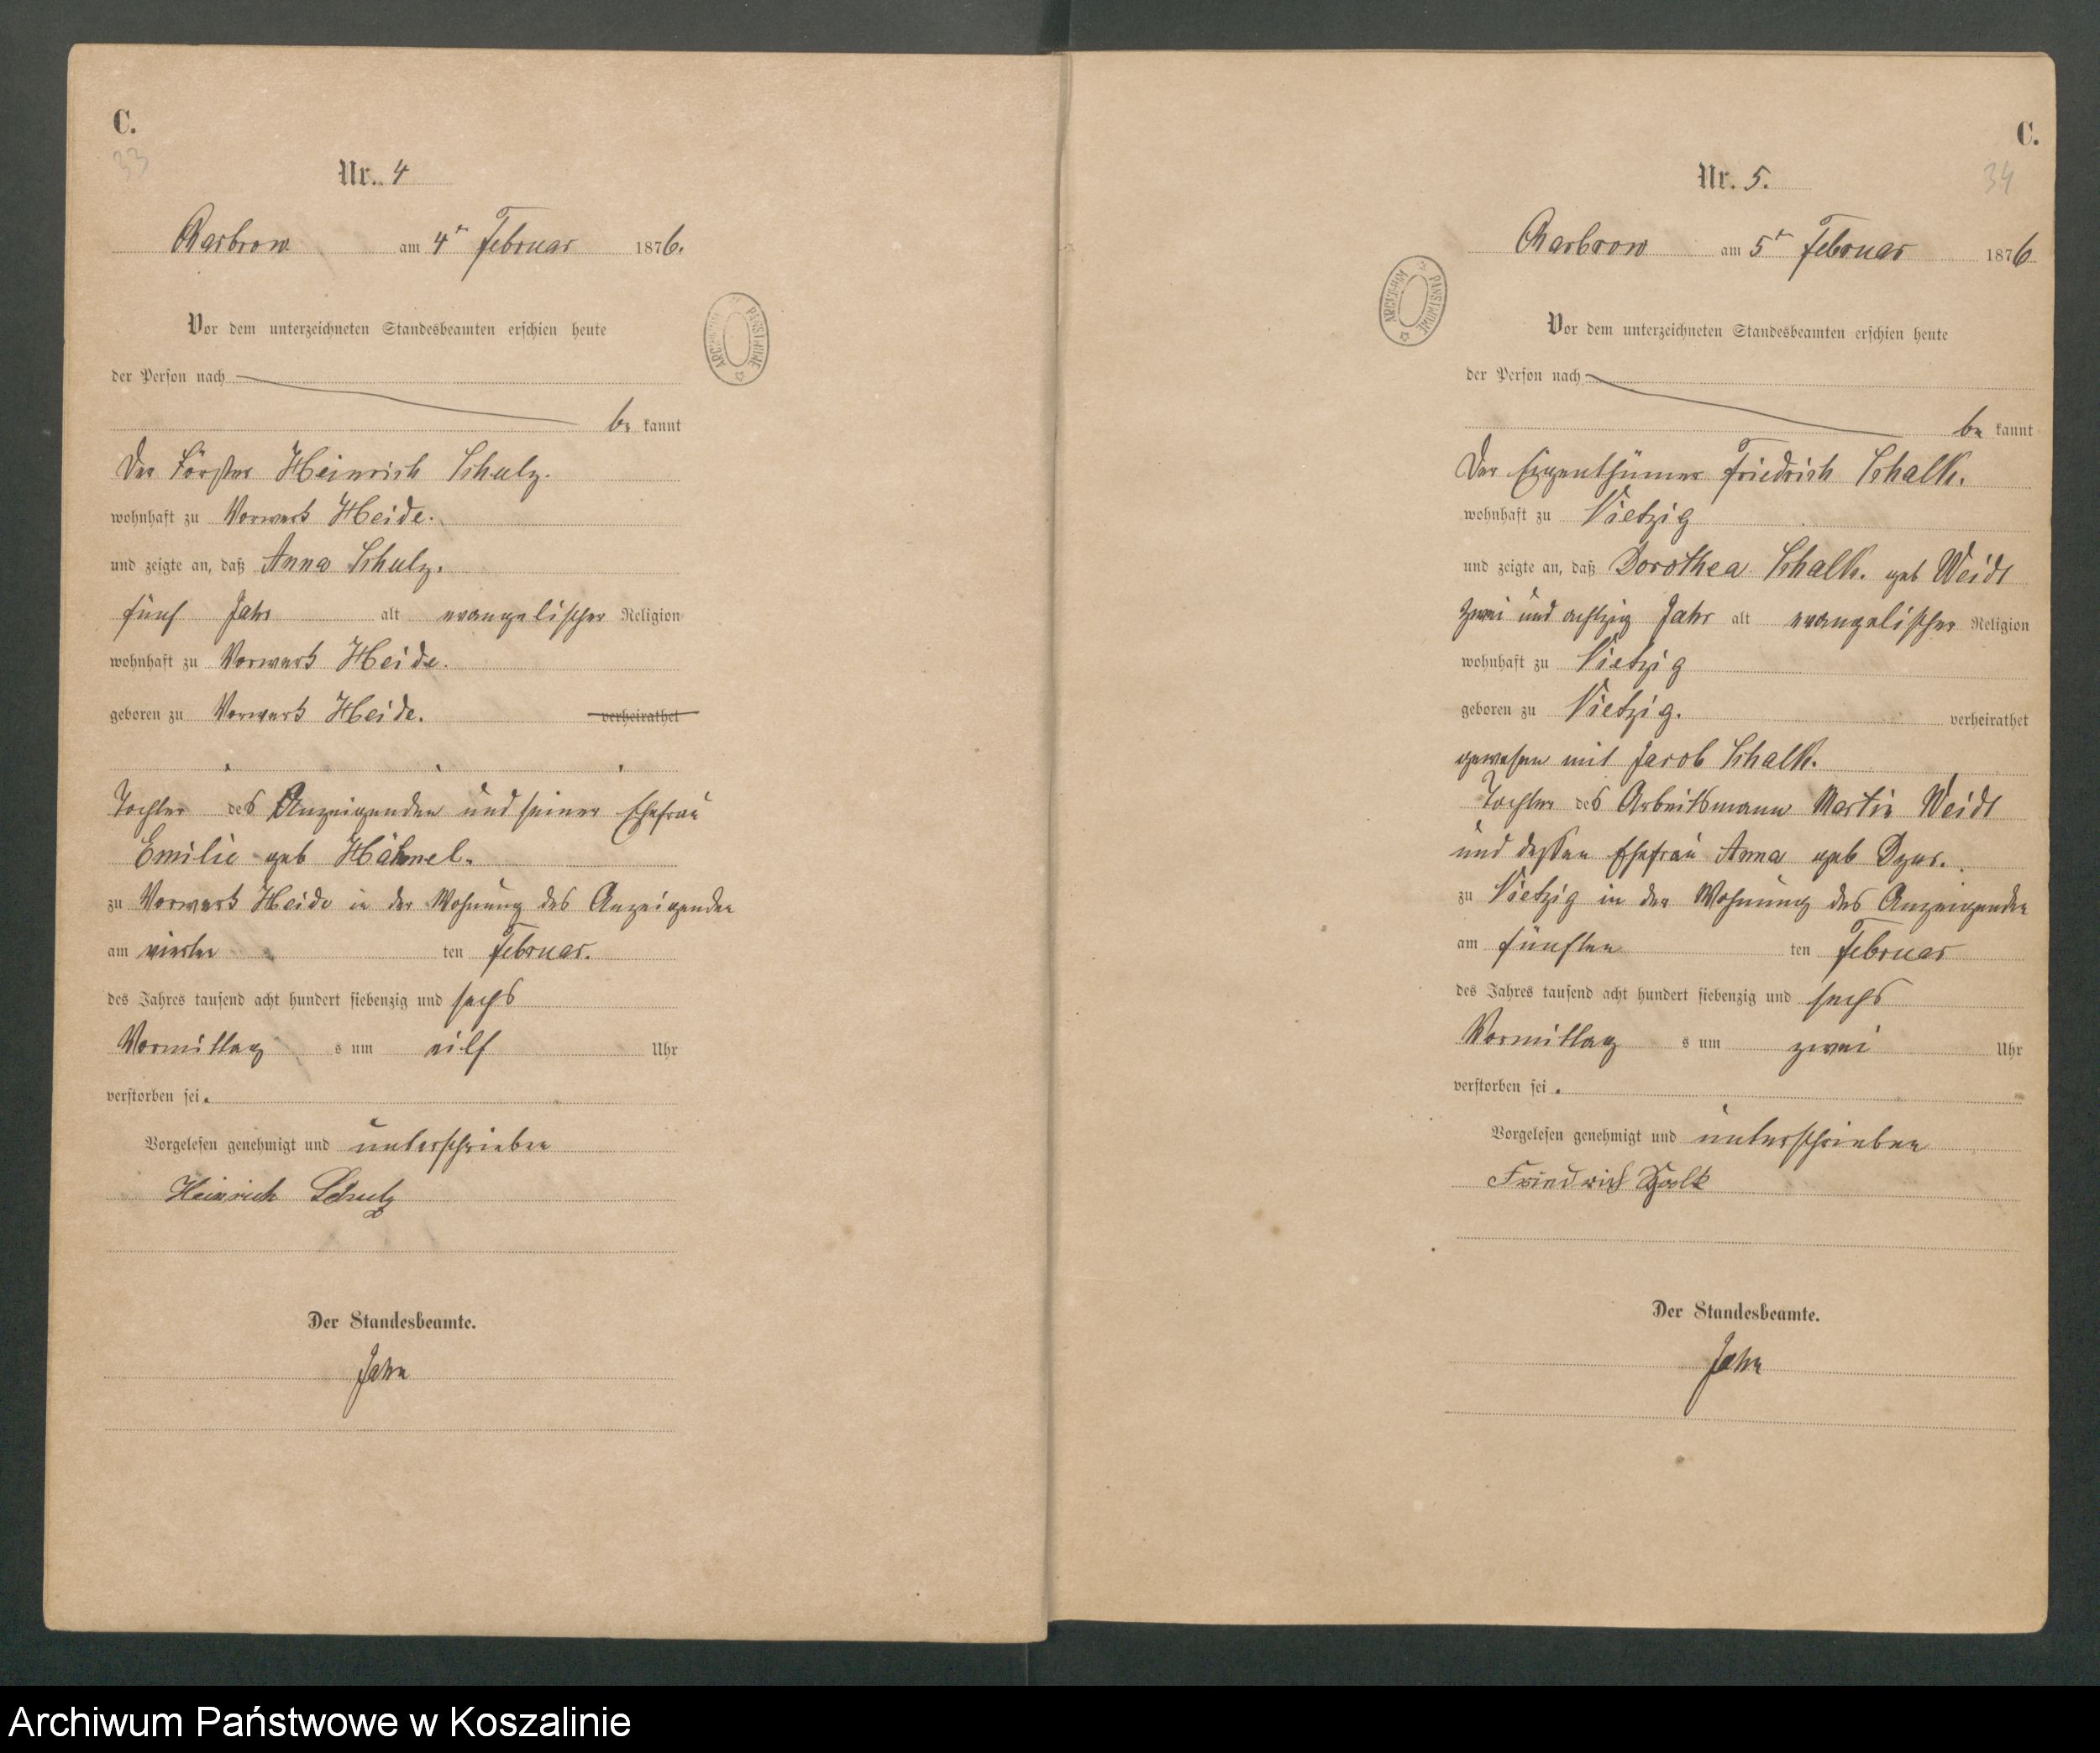 C.
33
Nr. 4
Charbrow am 4ten Februar 1876.
Vor dem unterzeichneten Standesbeamten erschien heute
der Person nach
be kannt
Der Förster Heinrich Schulz.
wohnhaft zu Vorwerk Heide.
und zeigte an, daß Anna Schulz.
fünf Jahr alt evangelischer Religion
wohnhaft zu Vorwerk Heide.
geboren zu Vorwerk Heide. verheirathet
Tochter des Anzeigenden und seiner Ehefrau
Emilie geb Hähnel.
zu Vorwerk Heide in der Wohnung des Anzeigenden
am vierten ten Februar.
des Jahres tausend acht hundert siebenzig und sechs
Vormittag s um eilf Uhr
verstorben sei.
Vorgelesen genehmigt und unterschrieben
Heinrich Schulz
Der Standesbeamte.
Jahn
C.
34
Nr. 5.
Charbrow am 5t Februar 1876
ARCHIWUM PAŃSTWOWE
Vor dem unterzeichneten Standesbeamten erschien heute
der Person nach
be kannt
Der Eigenthümer Friedrich Schalk.
wohnhaft zu Vietzig
und zeigte an, daß Dorothea Schalk. geb Weidt
zwei und achtzig Jahr alt evangelischer Religion
wohnhaft zu Vietzig
geboren zu Vietzig. verheirathet
gewesen mit Jacob Schalk.
Tochter des Arbeitsmann Martin Weidt
und dessen Ehefrau Anna geb
zu Vietzig in der Wohnung des Anzeigenden
am fünften ten Februar
des Jahres tausend acht hundert siebenzig und sechs
Vormittag s um zwei Uhr
verstorben sei.
Vorgelesen genehmigt und unterschrieben
Friedrich Schalk
Der Standesbeamte.
Jahn
Archiwum Państwowe w Koszalinie